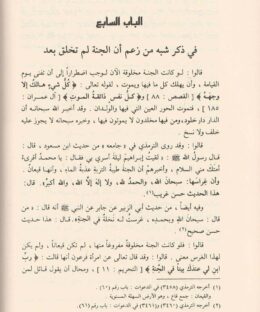 الباب السابع
في ذكر شبه من زعم أن الجنة لم تخلق بعد
قالوا : لو كانت الجنة مخلوقة الآن لوجب اضطراراً إلى أن تفنى يوم
القيامة ، وأن يهلك كل ما فيها ويموت ، لقوله تعالى : ﴿ كُلُّ شَيْءٍ هَالِكٌ إِلَّا
وَجْهَهُ ﴾ [ القصص : ٨٨ ] و﴿ كُلُّ نَفْسٍ ذَائِقَةُ الْمَوْتِ ﴾ [ آل عمران :
١٨٥ ] ، فتموت الحور العين التي فيها والولدان . وقد أخبر سبحانه أن
الدار دار خلود ، ومن فيها مخلدون لا يموتون فيها ، وخبره سبحانه لا يجوز عليه
خلف ولا نسخ .
قالوا : وقد روى الترمذي في جامعه من حديث ابن مسعود ، قال :
قال رسول الله ﷺ « لقيت إبراهيم ليلة أسري بي ، فقال : يا محمد أقرىء
أمتك مني السلام ، وأخبرهم أن الجنة طيبة التربة عذبة الماء ، وأنها قيعان ،
وأن غراسها : سبحان الله ، والحمد لله ، ولا إله إلا الله ، والله أكبر . قال :
هذا حديث حسن غريب
وفيه أيضاً ، من حديث أبي الزبير عن جابر عن النبي ﷺ أنه قال : « من
قال : سبحان الله وبحمده ، غرست له نخلة في الجنة » . قال : هذا حديث
حسن صحيح
قالوا : فلو كانت الجنة مخلوقة مفروغاً منها ، لم تكن قيعاناً ، ولم يكن
لهذا الغرس معنى . قالوا : وقد قال تعالى عن امرأة فرعون أنها قالت : ﴿ رَبِّ
ابْنِ لِي عِنْدَكَ بَيْتاً فِي الْجَنَّةِ ﴾ [ التحريم : ١١ ] ، ومحال أن يقول قائل لمن
(١) أخرجه الترمذي (٣٤٥٨) في الدعوات : باب رقم (٦٠)
والقيعان : جمع قاع ، وهو الأرض السهلة المستوية .
(٢) أخرجه الترمذي (٣٤٦٠) و(٣٤٦١) في الدعوات : باب رقم (٦١)